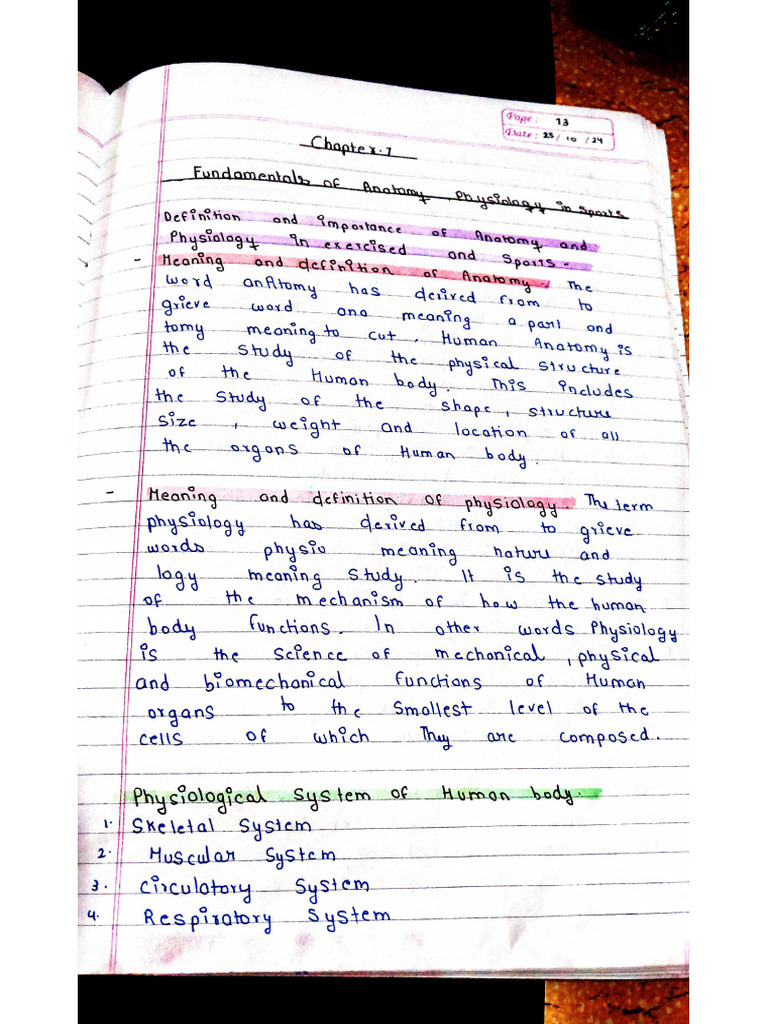 Page: 13
Date: 25/10/24
Chapter.7
Fundamentals of Anatomy, Physiology in Sports
Definition and importance of Anatomy and
Physiology in exercised and Sports-
- Meaning and definition of Anatomy. The
word anAtomy has derived from to
grieve word ana meaning a part and
tomy meaning to cut, Human Anatomy is
the study of the physical structure
of the Human body. This includes
the study of the shape, structure
size, weight and location of all
the organs of Human body.
- Meaning and definition of physiology. The term
physiology has derived from to grieve
words physio meaning nature and
logy meaning study. It is the study
of the mechanism of how the human
body functions. In other words Physiology
is the science of mechonical, physical
and biomechonical functions of Human
organs to the smallest level of the
cells of which They are composed.
Physiological System of Human body.
1. Skeletal System
2. Muscular System
3. Circulatory System
4. Respiratory System